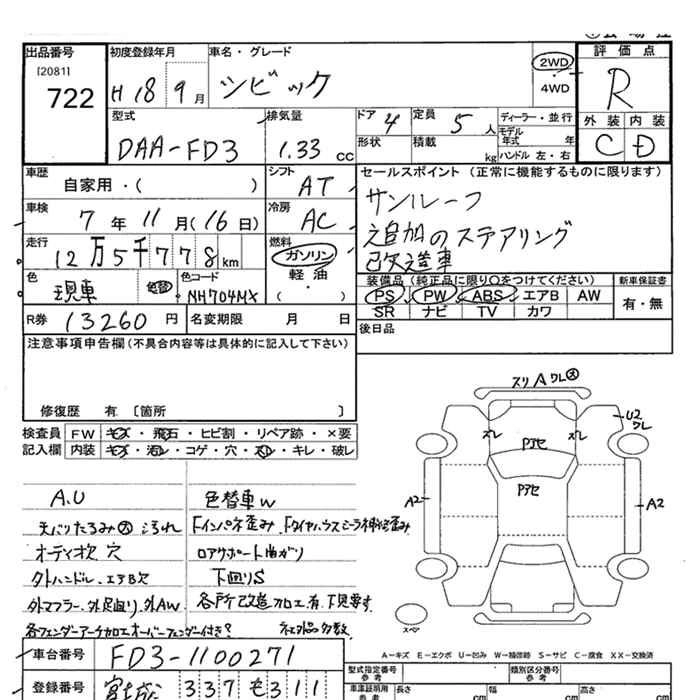 出品番号
[2081]
722
初度登録年月
H 18 9月
車名・グレード
シビック
2WD
4WD
評価点
R
外装 内装
C D
型式
DAA-FD3
排気量
1.33 cc
ドア
4
定員
5人
形状
積載
kg
ディーラー・並行
モデル年式 年
ハンドル 左・右
車歴
自家用・( )
シフト
AT
車検
7年11月(16日)
冷房
AC
走行
12万5千778km
燃料
ガソリン
軽油
( ・ )
色
現車
色替
色コード
NH704MX
R券 13260円
名変期限 月 日
セールスポイント (正常に機能するものに限ります)
サンルーフ
追加のステアリング
改造車
装備品 (純正品に限り○をつけてください)
PS PW ABS エアB AW
SR ナビ TV カワ
新車保証書
有・無
後日品
注意事項申告欄(不具合内容等は具体的に記入して下さい)
修復歴 有 〔箇所 〕
検査員 FW キズ・飛石・ヒビ割・リペア跡・×要
記入欄 内装 キズ・汚れ・コゲ・穴・スレ・キレ・破レ
A.U
天バリたるみ大 よごれ
オーディオ欠 穴
外ハンドル、エアB欠
外マフラー、外足廻り、外AW
各フェンダーアーチ加工オーバーフェンダー付き?
色替車W
Fインパネ歪み、
ロアサポート曲がり
下廻りS
各所改造加工有 下見要す
社外品多数
スリ A ワレ大
U2
ワレ
ズレ
ズレ
Pアセ
Pアセ
A2
A2
スペア
A-キズ E-エクボ U-凹み W-補修跡 S-サビ C-腐食 XX-交換済
車台番号 FD3-1100271
登録番号 宮城 337 も311
型式指定番号
参考
類別区分番号
参考
車庫証明用
参考
長さ cm
幅 cm
高さ cm